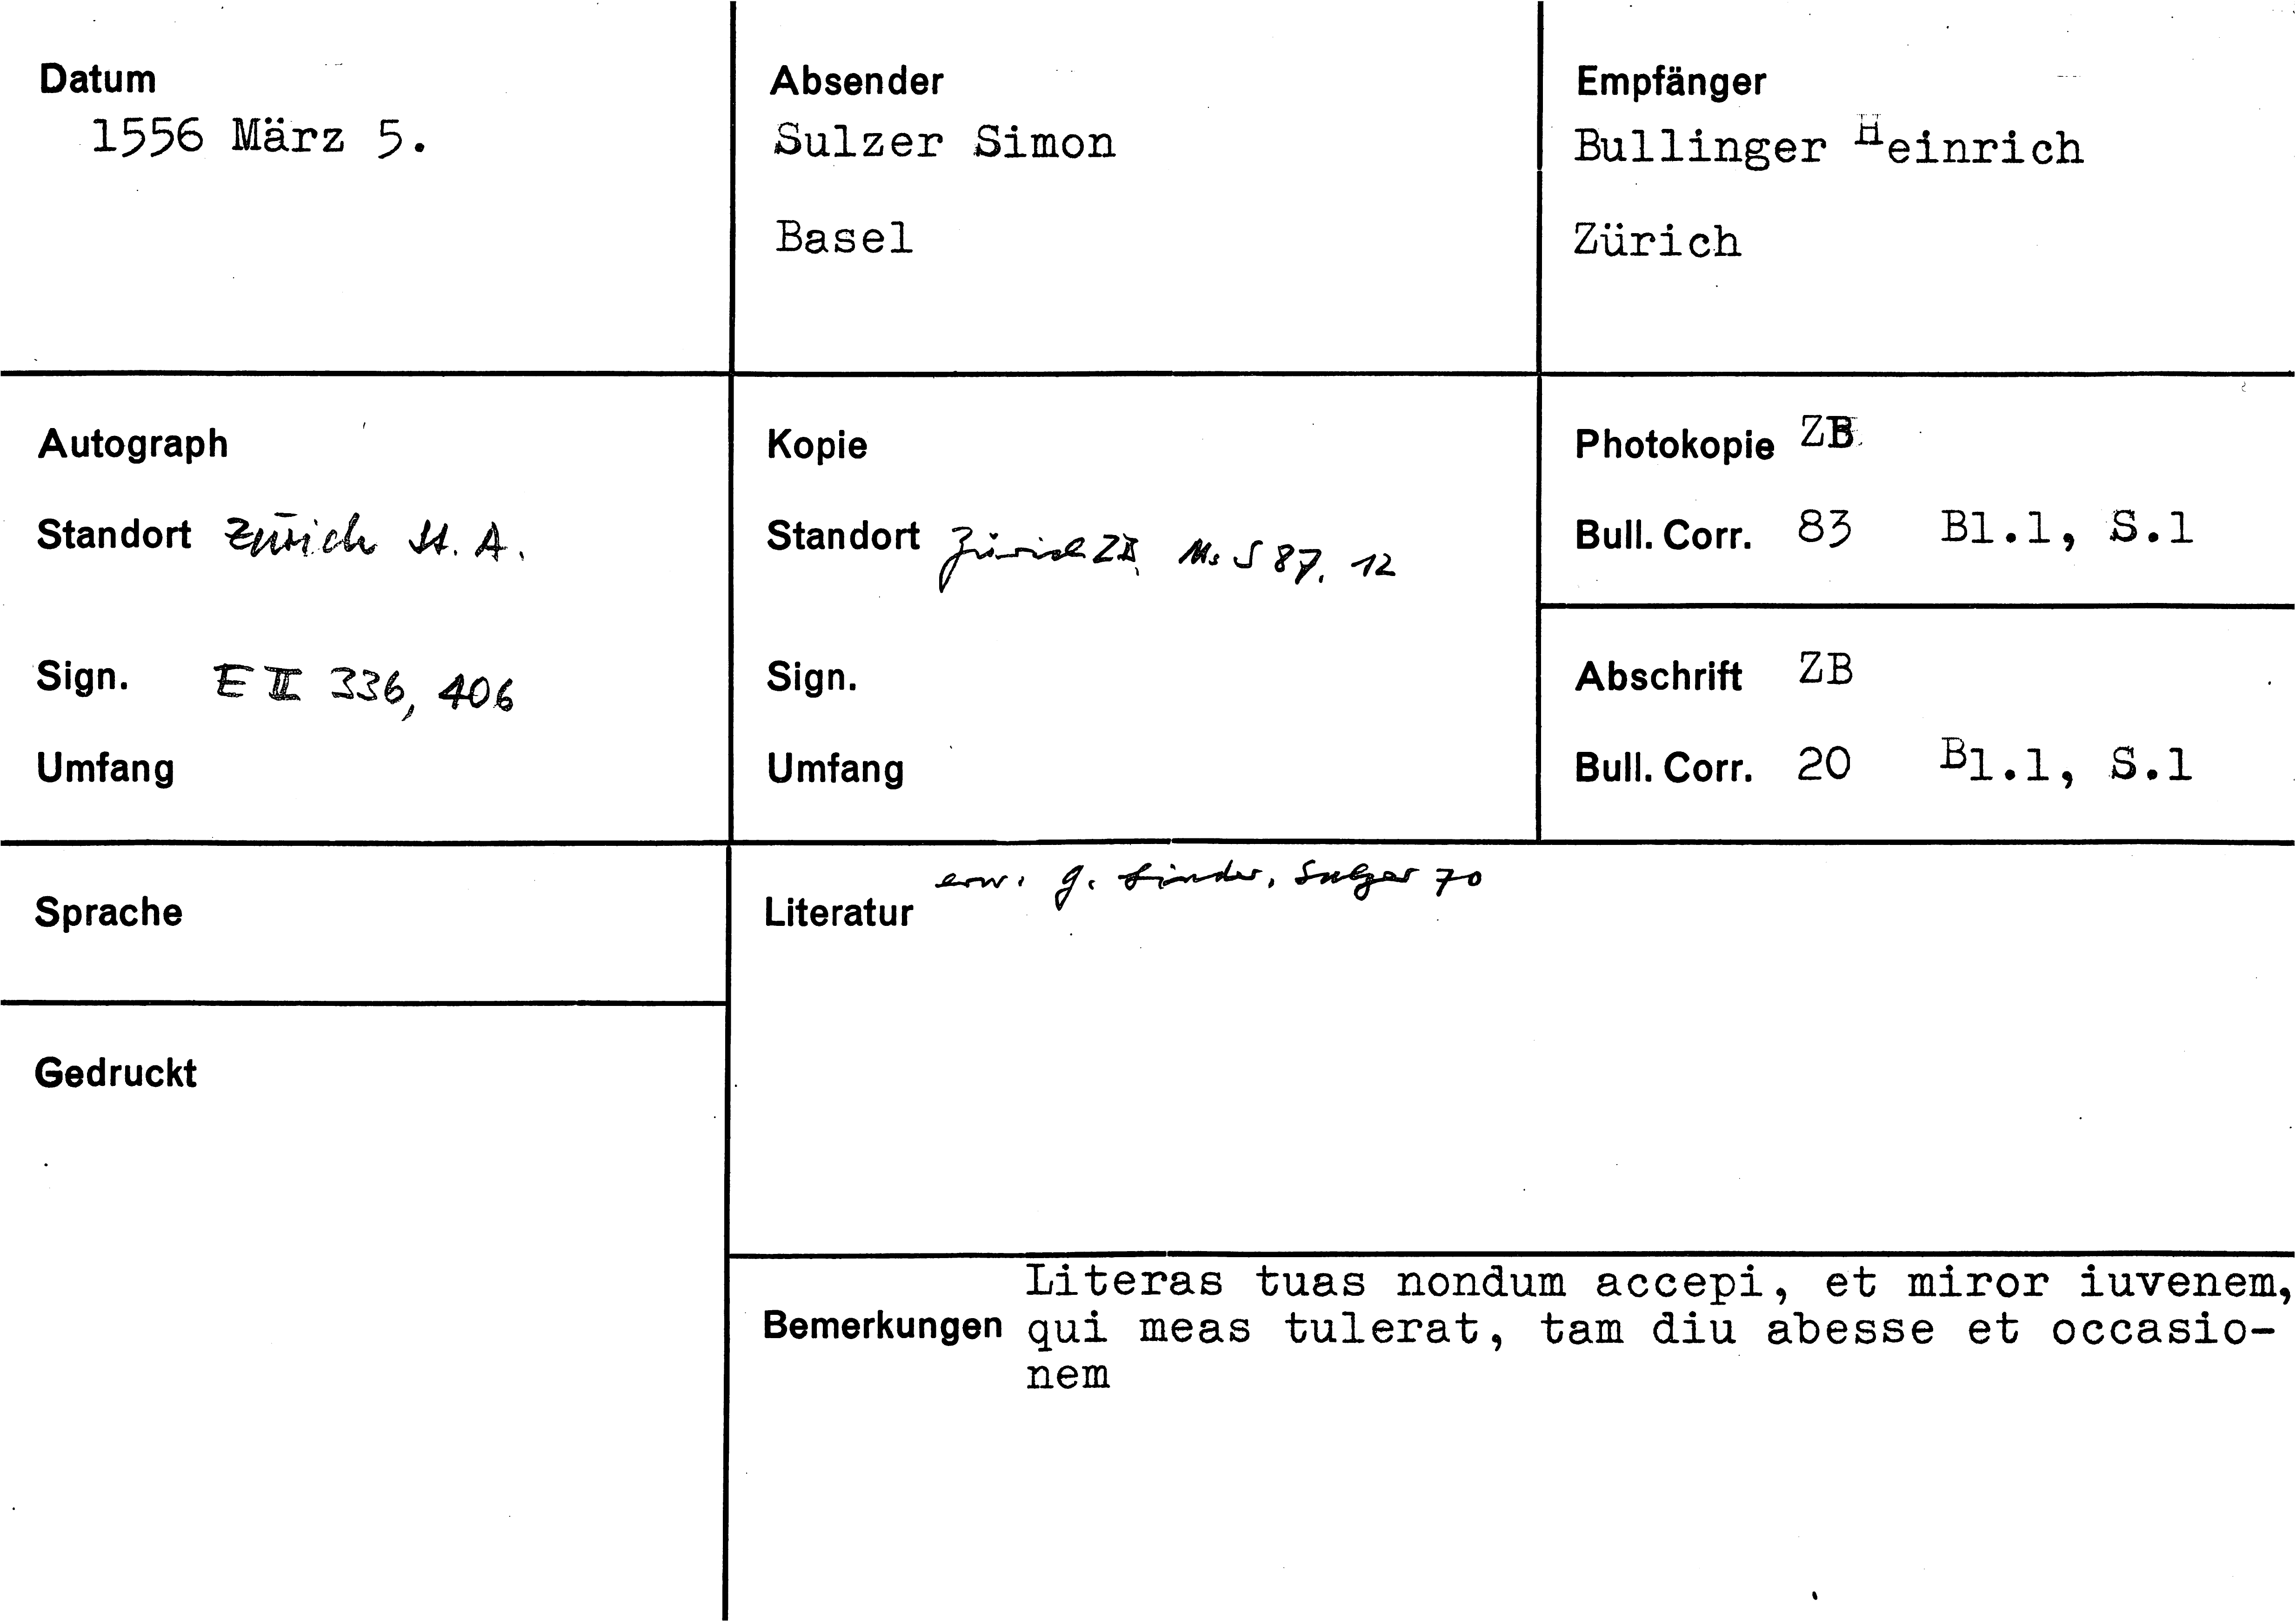 Datum
1556 März 5.
Absender
Sulzer Simon
Basel
Empfänger
Bullinger Heinrich
Zürich
Autograph
Standort Zürich St. A.
Sign. E II 336, 406
Umfang
Kopie
Standort Zürich ZB, Ms S 87, 12
Sign.
Umfang
Photokopie ZB
Bull. Corr. 83 Bl.1, S.1
Abschrift ZB
Bull. Corr. 20 Bl.1, S.1
Sprache
Gedruckt
Literatur erw. G. Linder, Sulzer 70
Bemerkungen
Literas tuas nondum accepi, et miror iuvenem,
qui meas tulerat, tam diu abesse et occasio-
nem